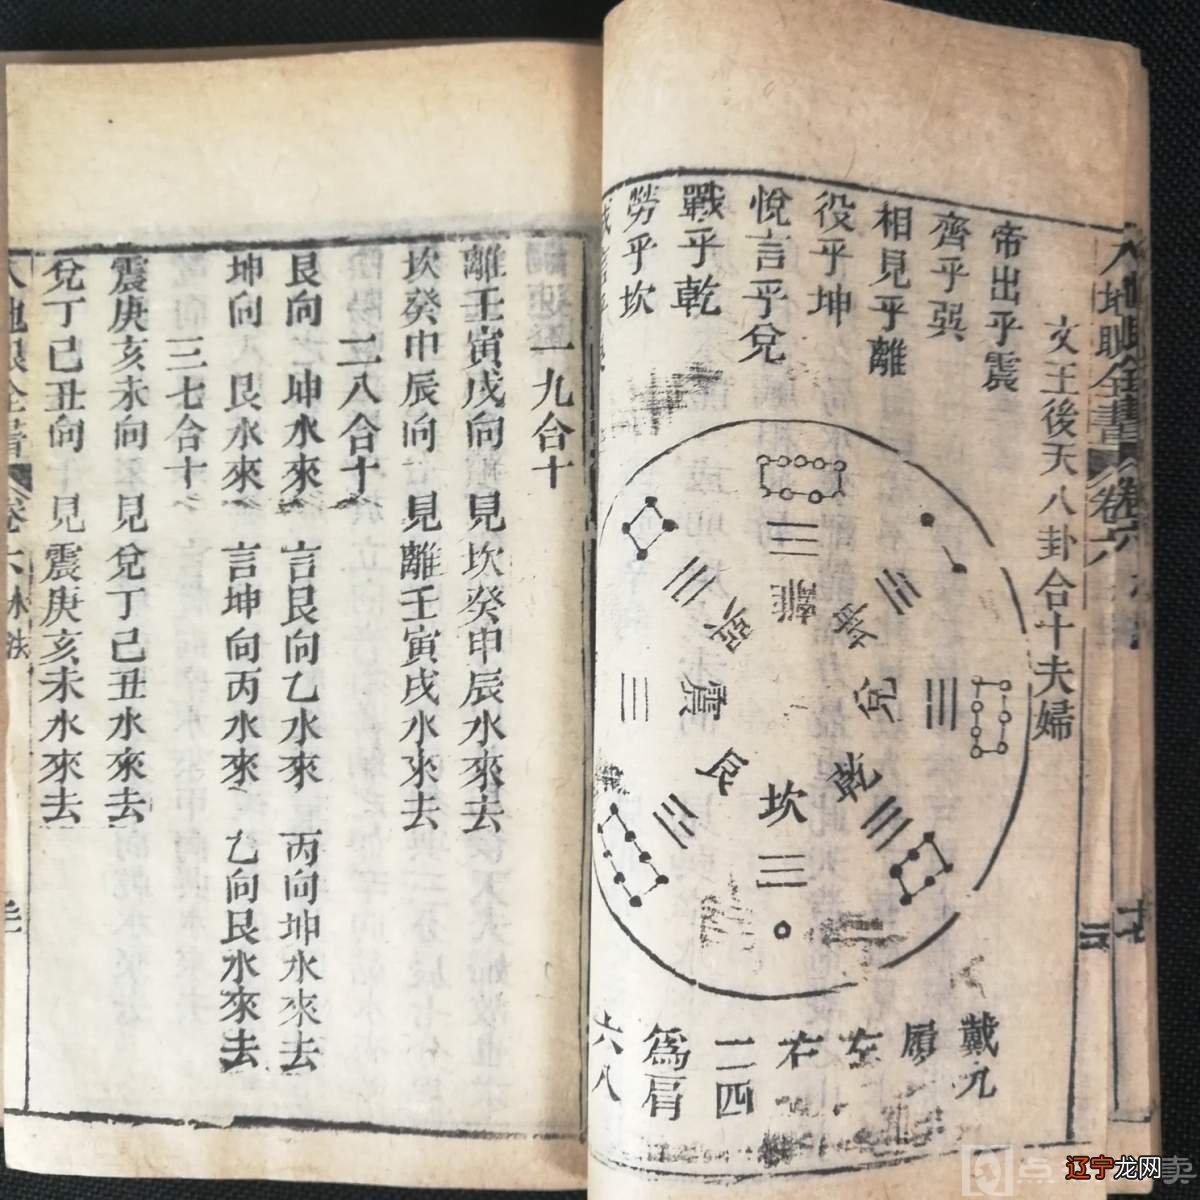 文王後天八卦合十夫婦
帝出乎震
齊乎巽
相見乎離
役乎坤
悅言乎兌
戰乎乾
勞乎坎
離
坤
兌
乾
坎
艮
震
巽
戴九
履
左
右
二四
為肩
六八
一九合十
離壬寅戌向 見坎癸申辰水來去
坎癸申辰向 見離壬寅戌水來去
二八合十
艮向 坤水來 言艮向乙水來 丙向坤水來去
坤向 艮水來 言坤向丙水來 乙向艮水來去
三七合十
震庚亥未向 見兌丁己丑水來去
兌丁己丑向 見震庚亥未水來去
全書 卷六
辽宁龙网